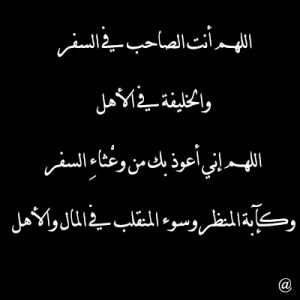 اللهم أنت الصاحب في السفر
والخليفة في الأهل
اللهم إني أعوذ بك من وعْثاءِ السفر
وكآبة المنظر وسوء المنقلب في المال والأهل
@